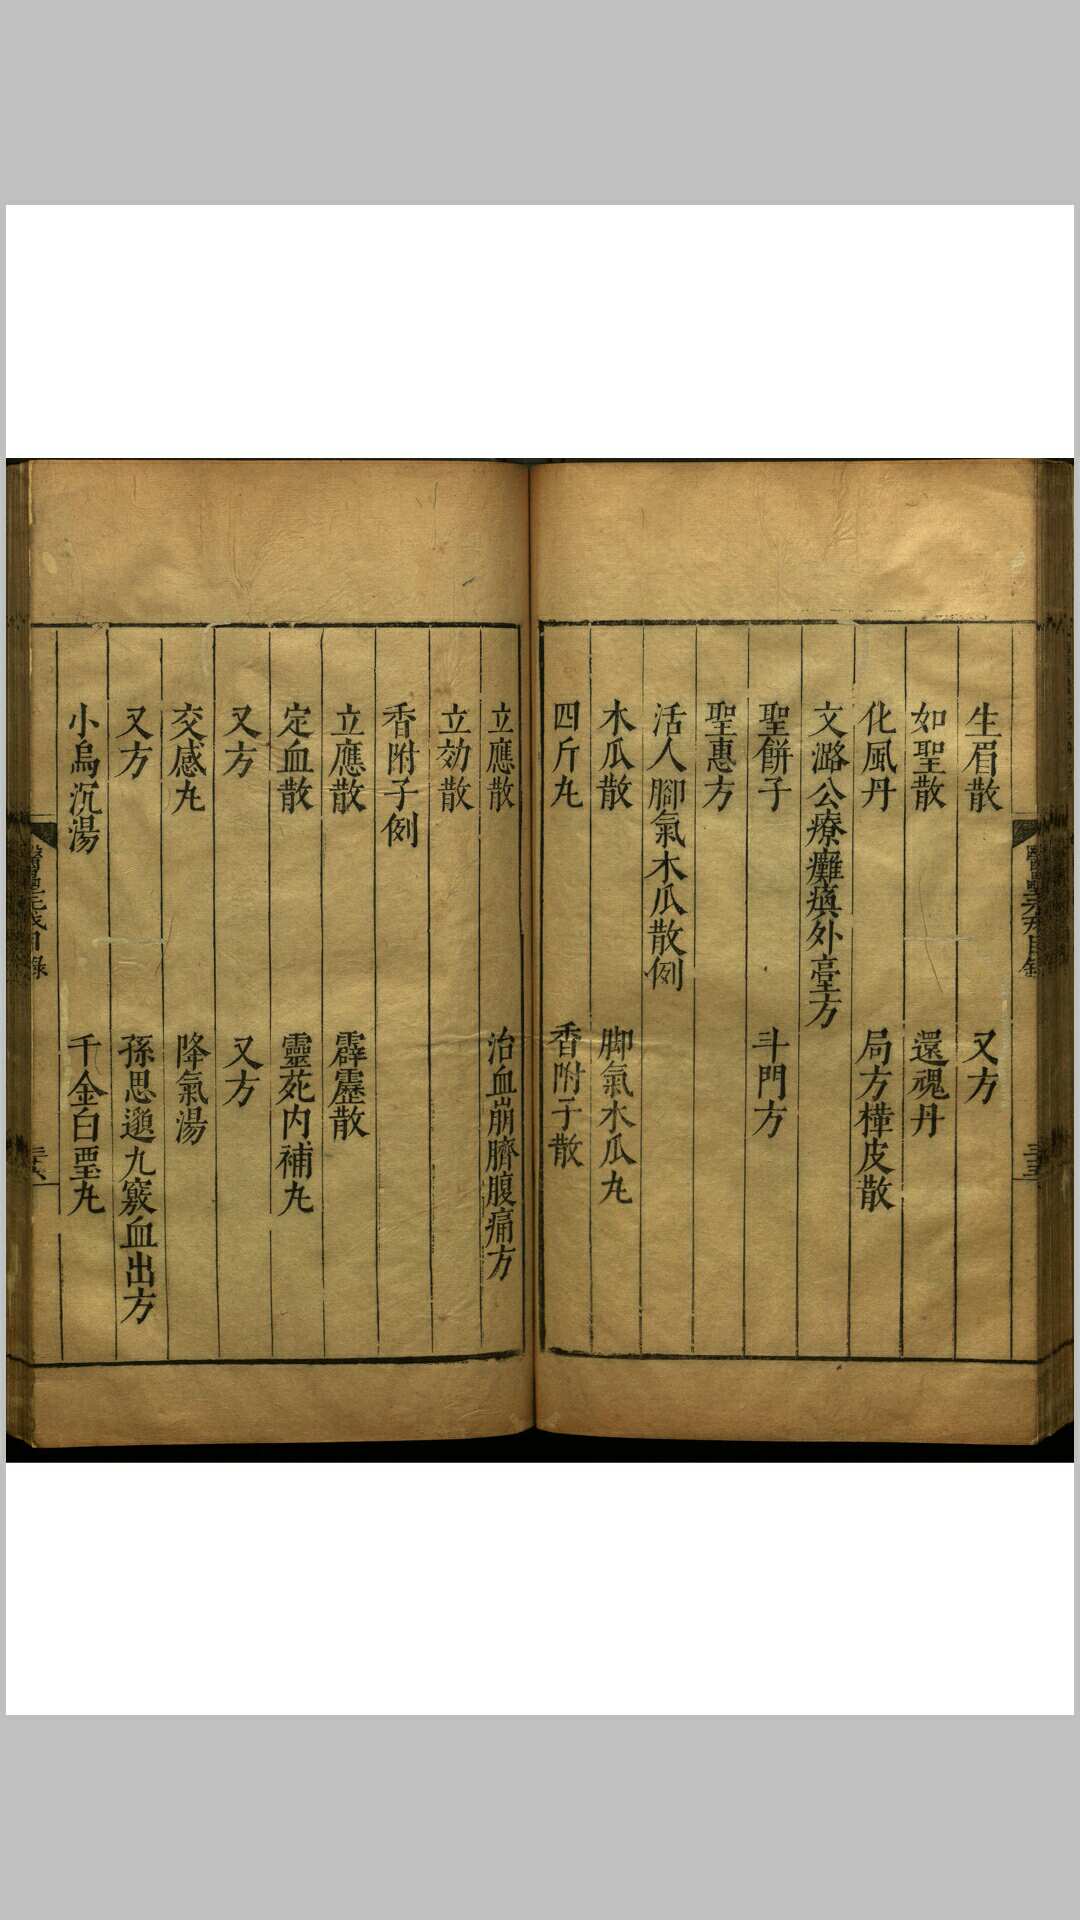 生眉散　又方
如聖散　還魂丹
化風丹　局方樺皮散
文潞公療癱瘓外臺方
聖餅子　斗門方
聖惠方
活人脚氣木瓜散例
木瓜散　脚氣木瓜丸
四斤丸　香附子散
立應散　治血崩臍腹痛方
立効散
香附子例
立應散　霹靂散
定血散　靈苑内補丸
又方　又方
交感丸　降氣湯
又方　孫思邈九竅血出方
小烏沉湯　千金白堊丸